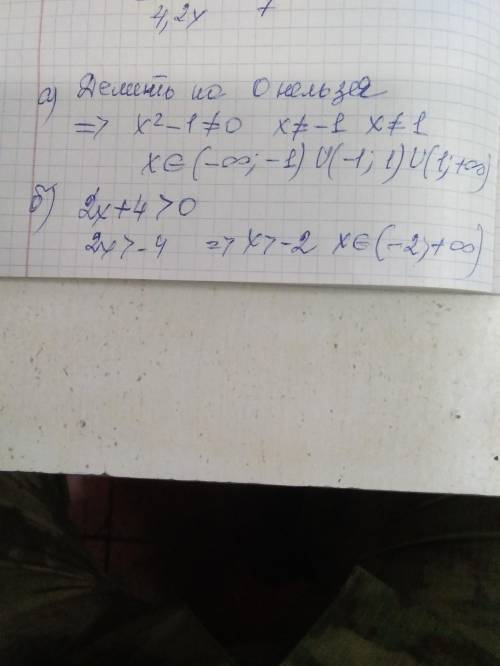 4,2x 7
а) Делить на 0 нельзя
=> x²-1≠0 x≠-1 x≠1
x∈(-∞;-1)∪(-1;1)∪(1;+∞)
б) 2x+4>0
2x>-4 => x>-2 x∈(-2;+∞)